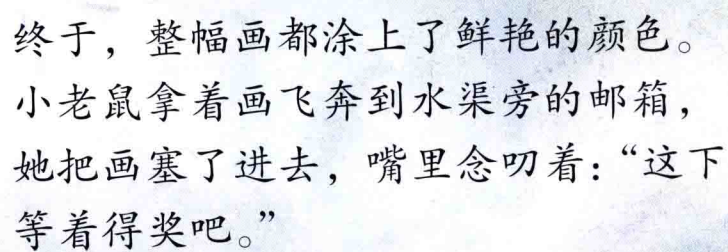 终于，整幅画都涂上了鲜艳的颜色。
小老鼠拿着画飞奔到水渠旁的邮箱，
她把画塞了进去，嘴里念叨着：“这下
等着得奖吧。”